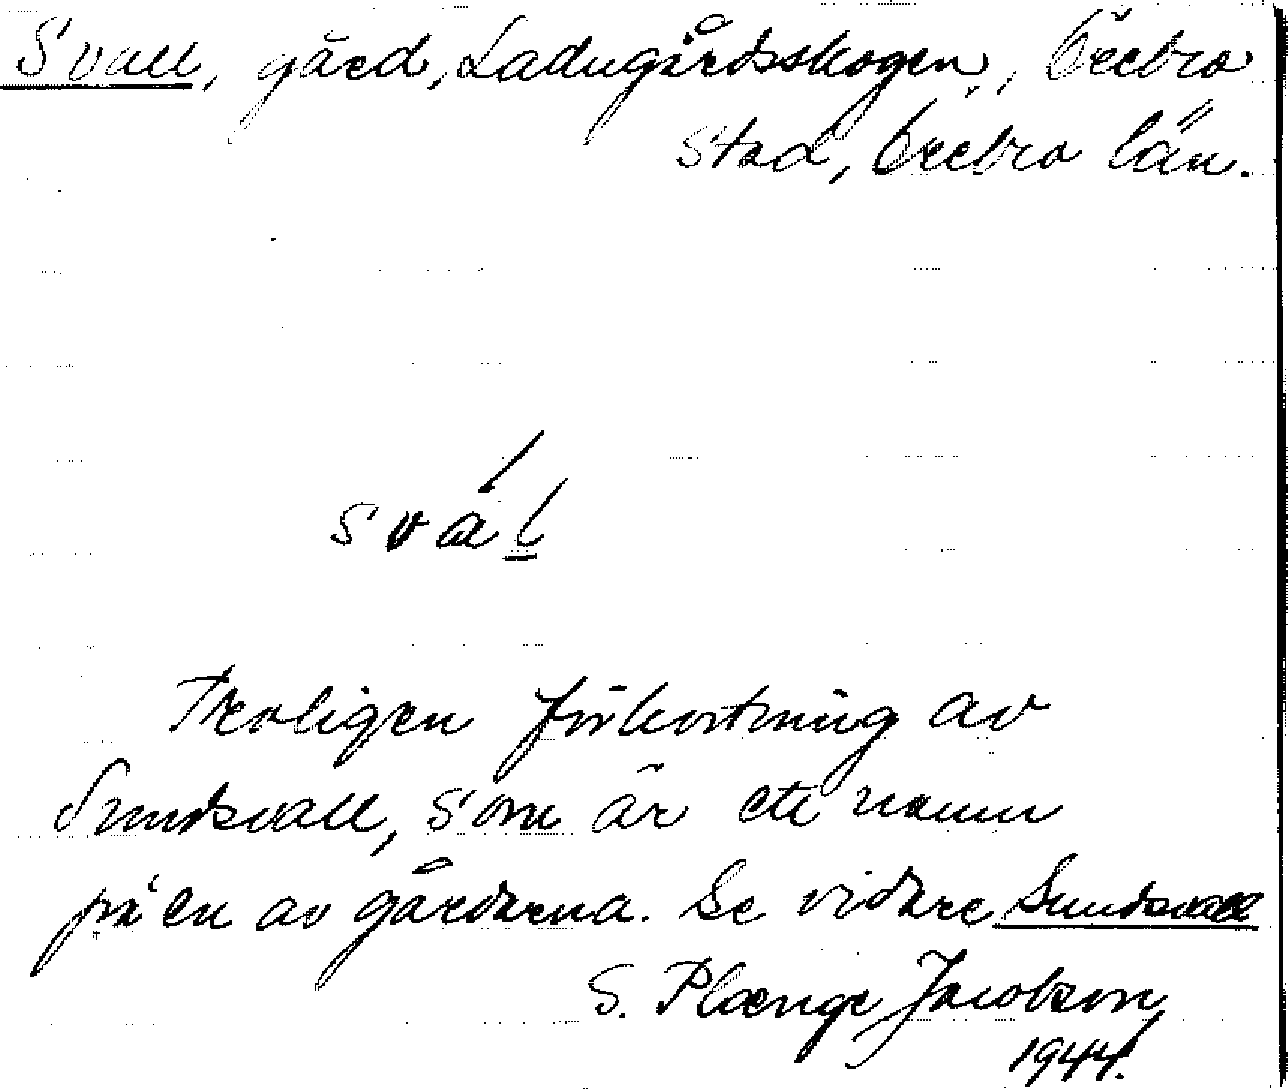 Svall, gård, Ladugårdsskogen, Örebro
stad, Örebro län.
svál
Troligen förkortning av
Sundsvall, som är ett namn
på en av gårdarna. Se vidare Sundsvall
S. Plænge Jacobson
1944.